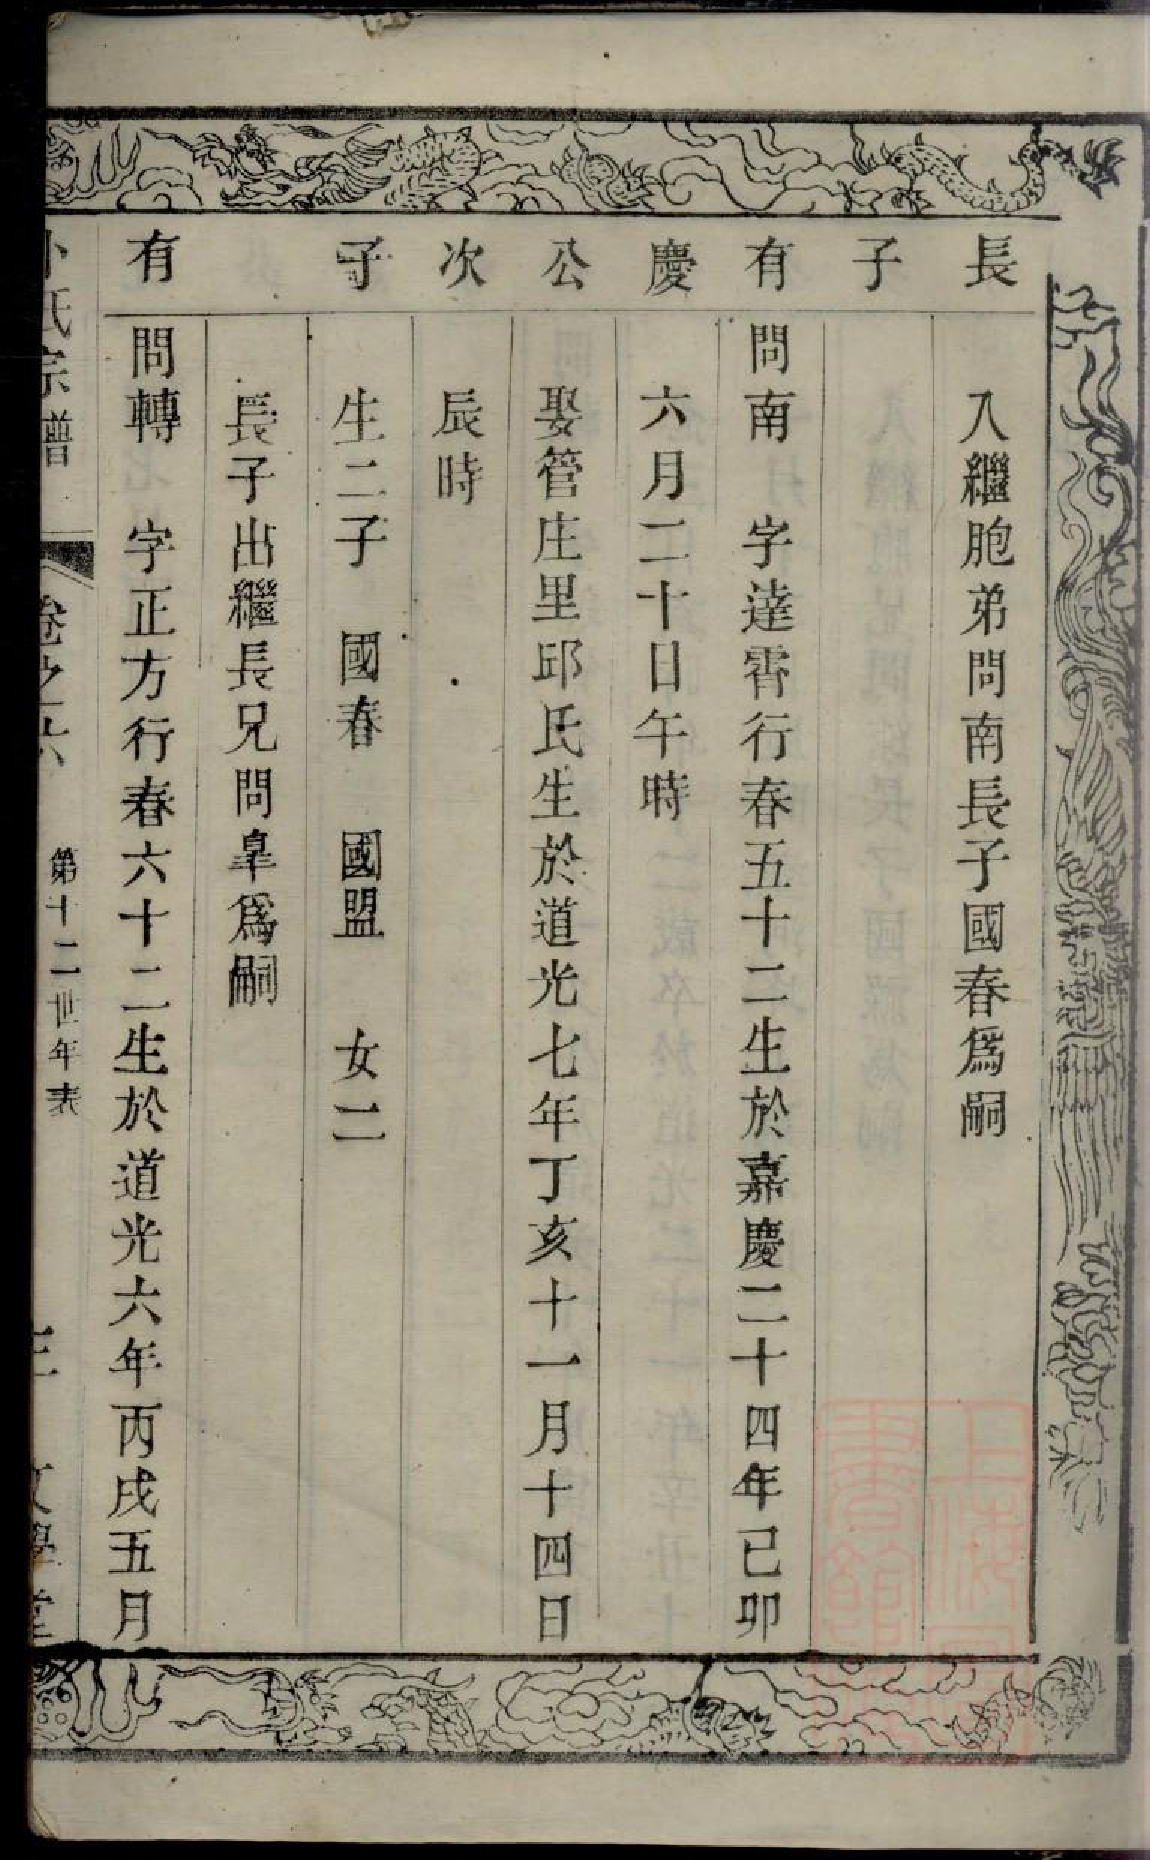 長 入繼胞弟問南長子國春爲嗣
子
有 問南 字達霄行春五十二生於嘉慶二十四年己卯
慶 六月二十日午時
公 娶管庄里邱氏生於道光七年丁亥十一月十四日
次 辰時
子 生二子 國春 國盟 女二
長子出繼長兄問皐爲嗣
有 問轉 字正方行春六十二生於道光六年丙戌五月
氏宗譜 卷之六 第十二世年表
上海圖書館藏